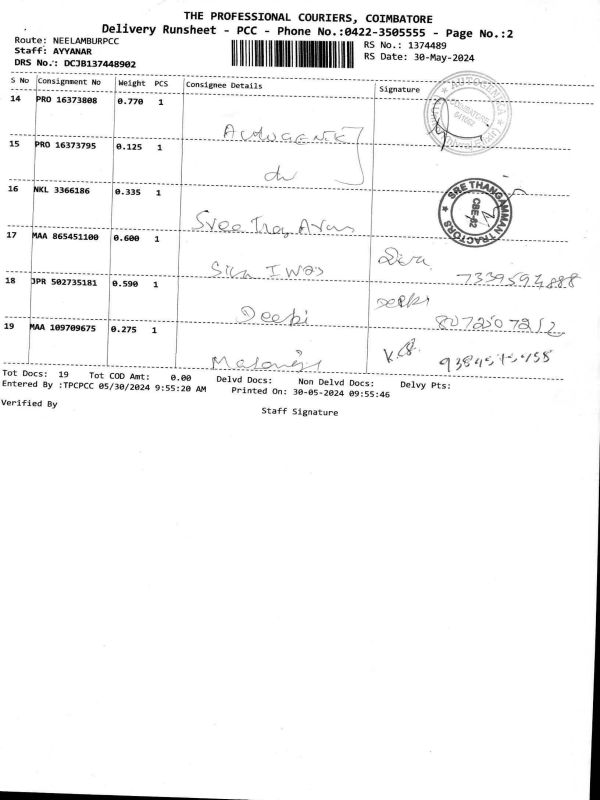 THE PROFESSIONAL COURIERS, COIMBATORE
Delivery Runsheet - PCC - Phone No.:0422-3505555 - Page No.:2
Route: NEELAMBURPCC
Staff: AYYANAR
DRS No.: DCJB137448902
RS No.: 1374489
RS Date: 30-May-2024
S No Consignment No Weight PCS Consignee Details Signature
14 PRO 16373808 0.770 1
AUTOGENE
COIMBATORE
AUTOGENE
15 PRO 16373795 0.125 1
do
16 NKL 3366186 0.335 1
SRE THANGAMMAN TRACTORS
CBE-62
Sree
17 MAA 865451100 0.600 1
Siva
7339594888
18 JPR 502735181 0.590 1
Deepi
8072507212
19 MAA 109709675 0.275 1
Tot Docs: 19 Tot COD Amt: 0.00 Delvd Docs: Non Delvd Docs: Delvy Pts:
Entered By :TPCPCC 05/30/2024 9:55:20 AM Printed On: 30-05-2024 09:55:46
Verified By
Staff Signature